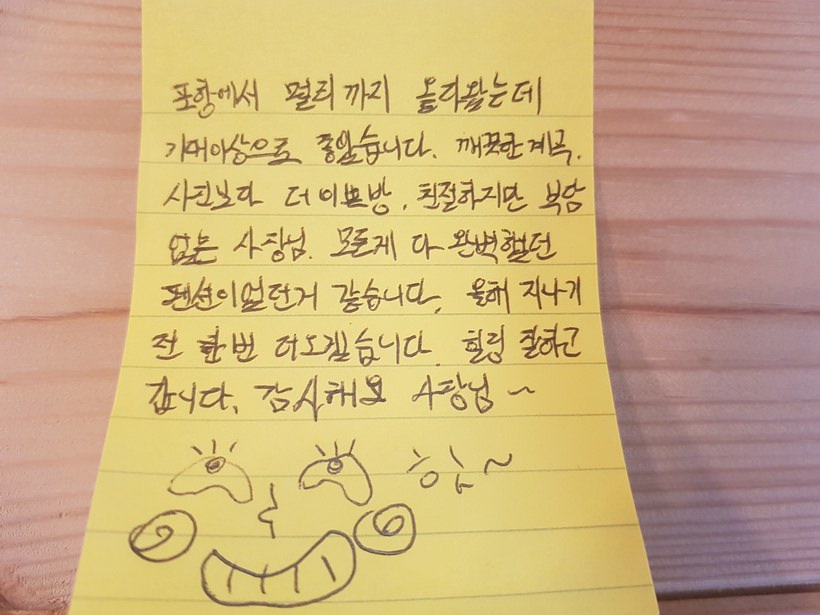 포항에서 멀리까지 올라왔는데
기대이상으로 좋았습니다. 깨끗한 계곡,
사진보다 더 이쁜방, 친절하지만 부담
없는 사장님. 모든게 다 완벽했던
펜션이었던거 같습니다. 올해 지나기
전 한번 더오겠습니다. 힐링 잘하고
갑니다. 감사해요 사장님~
핫~